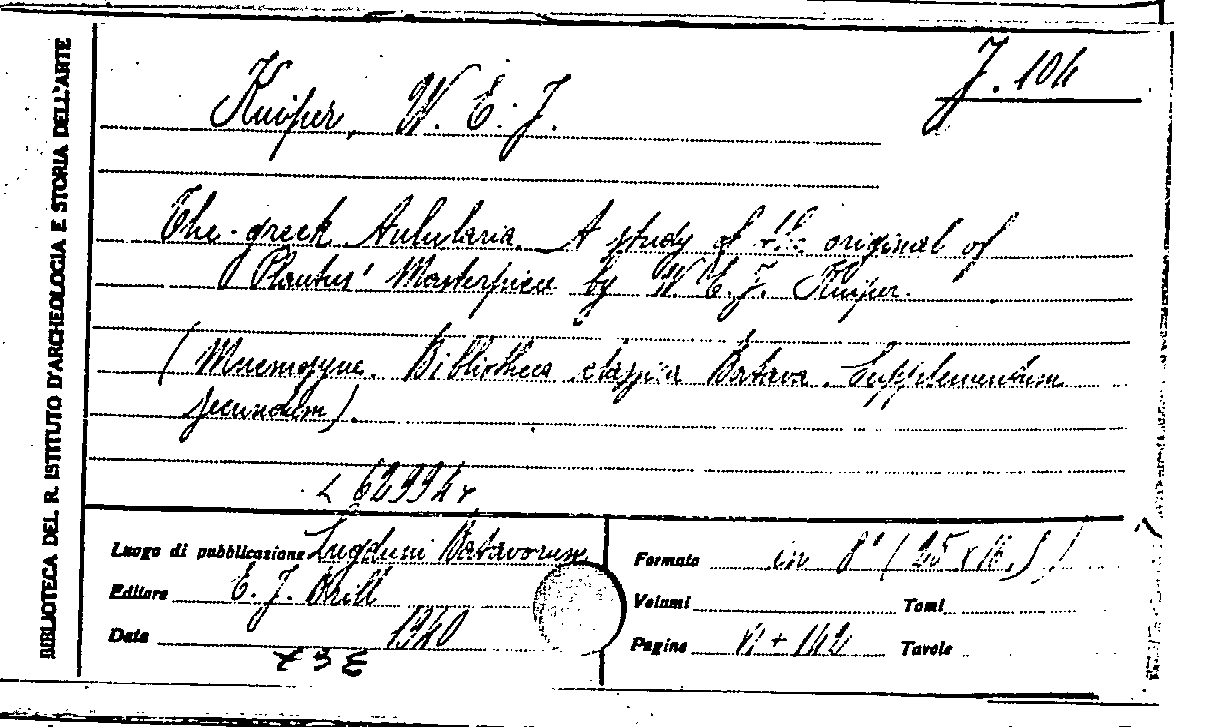 BIBLIOTECA DEL R. ISTITUTO D'ARCHEOLOGIA E STORIA DELL'ARTE
J. 104
Kuiper, W. E. J.
The greek Aulularia. A study of the original of
Plautus' Masterpiece by W. E. J. Kuiper.
(Mnemosyne. Bibliotheca classica Batava. Supplementum
secundum).
62994
Luogo di pubblicazione Lugduni Batavorum
Editore E. J. Brill
Data 1940
Formato in 8° (25 x 16,5)
Volumi Tomi
Pagine VI + 142 Tavole